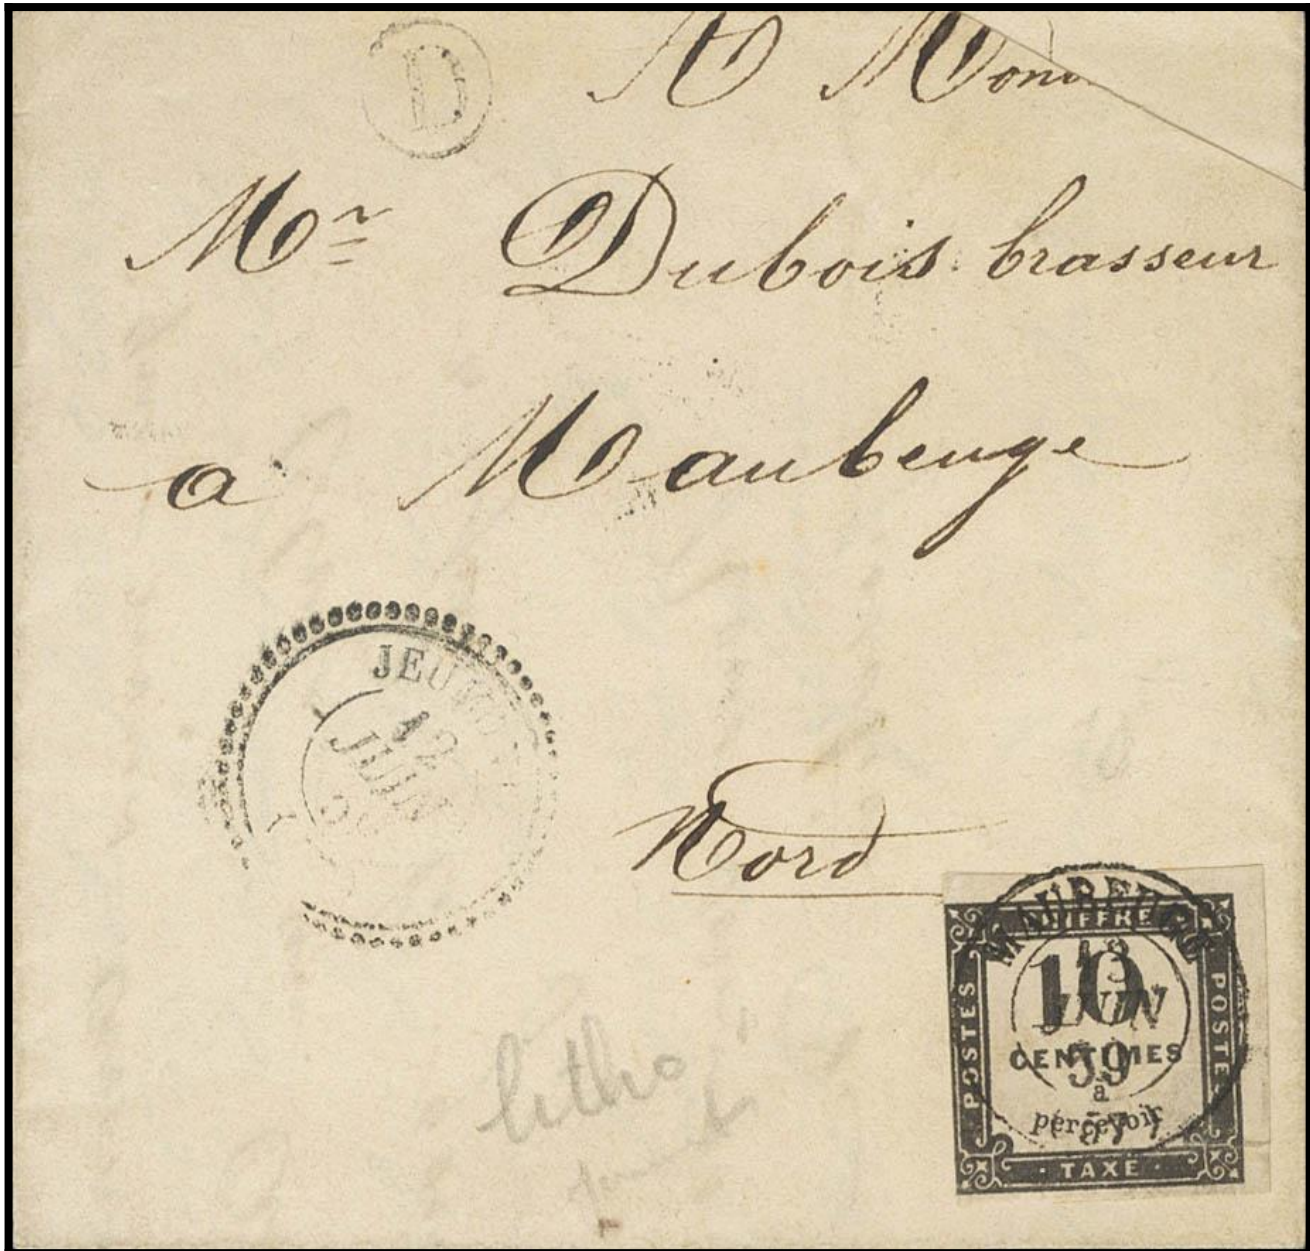 D
A Mon
Mr Dubois brasseur
a Maubeuge
JEUMONT
12
JUIN
59
Nord
MAUBEUGE
13
JUIN
59
(57)
CHIFFRE
POSTES
POSTES
10
CENTIMES
à
percevoir
· TAXE ·
litho